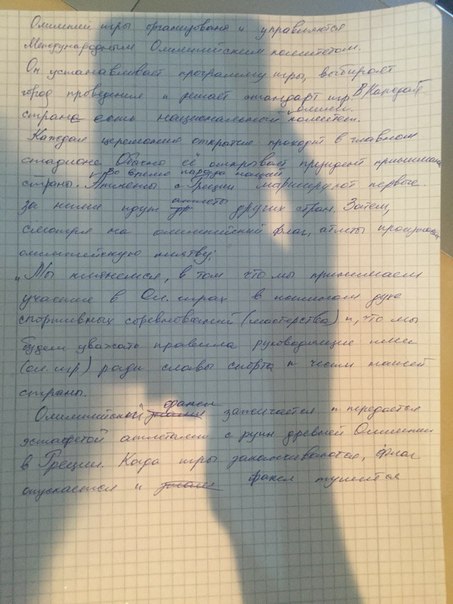 Олимпий игры организованы и управляются
Международным Олимпийским комитетом.
Он устанавливает программу игры, выбирает
город проведения и решает стандарт игр. В Каждой
стране есть национальный олимп. комитет.
Каждая церемония открытия проходит в главном
стадионе. Обычно её открывает президент
страны. Во время парада наций Атлеты с Греции маршируют первые.
за ними идут атлеты других стран. Затем,
смотря на олимпийский флаг, атлеты произносят
олимпийскую клятву:
"Мы клянемся, в том что мы принимаем
участие в Ол. играх в истинном духе
спортивных соревнований (мастерства) и, что мы
будем уважать правила руководящие ими
(ол. игр) ради славы спорта и чести нашей
страны.
Олимпийский факел зажигается и передается
эстафетой атлетами с руин древней Олимпии
в Греции. Когда игры заканчиваются, флаг
опускается и факел тушится